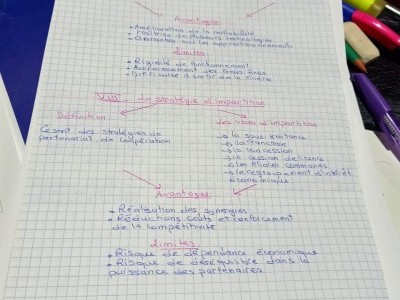 Avantages:
• Amélioration de la rentabilité
• Maîtrise de plusieurs technologies
• Garanties sur les approvisionnements
Limites:
• Rigidité de fonctionnement
• Accroissement des frais fixes
• Difficulté à sortir de la filière
de stratégie d'impartition
Définition
Les types d'impartition
Ce sont des stratégies de
partenariat de coopération
→ la sous traitance
→ la franchise
→ la concession
→ la cession de licence
→ les pilotes commandés
→ le regroupement d'intérêt
économique
Avantages:
• Réalisation des synergies
• Réductions coûts et renforcement
de la compétitivité
Limites:
• Risque de dépendance économique
• Risque de déséquilibre dans la
puissance des partenaires